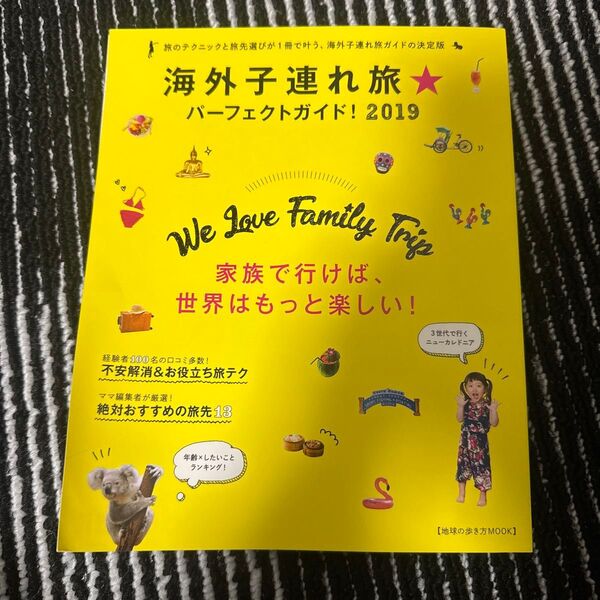 旅のテクニックと旅先選びが1冊で叶う、海外子連れ旅ガイドの決定版
海外子連れ旅★
パーフェクトガイド! 2019
We Love Family Trip
家族で行けば、
世界はもっと楽しい!
3世代で行く
ニューカレドニア
経験者100名の口コミ多数!
不安解消&お役立ち旅テク
ママ編集者が厳選!
絶対おすすめの旅先13
年齢×したいこと
ランキング!
【地球の歩き方MOOK】